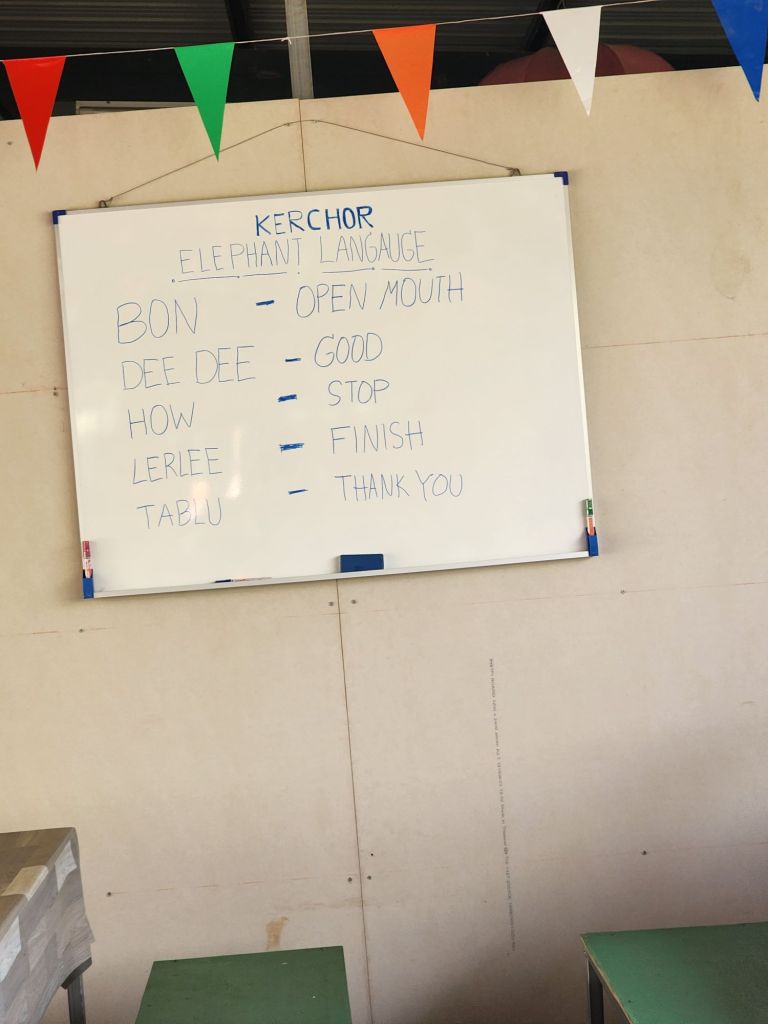 KERCHOR
ELEPHANT LANGAUGE
BON - OPEN MOUTH
DEE DEE - GOOD
HOW - STOP
LERLEE - FINISH
TABLU - THANK YOU